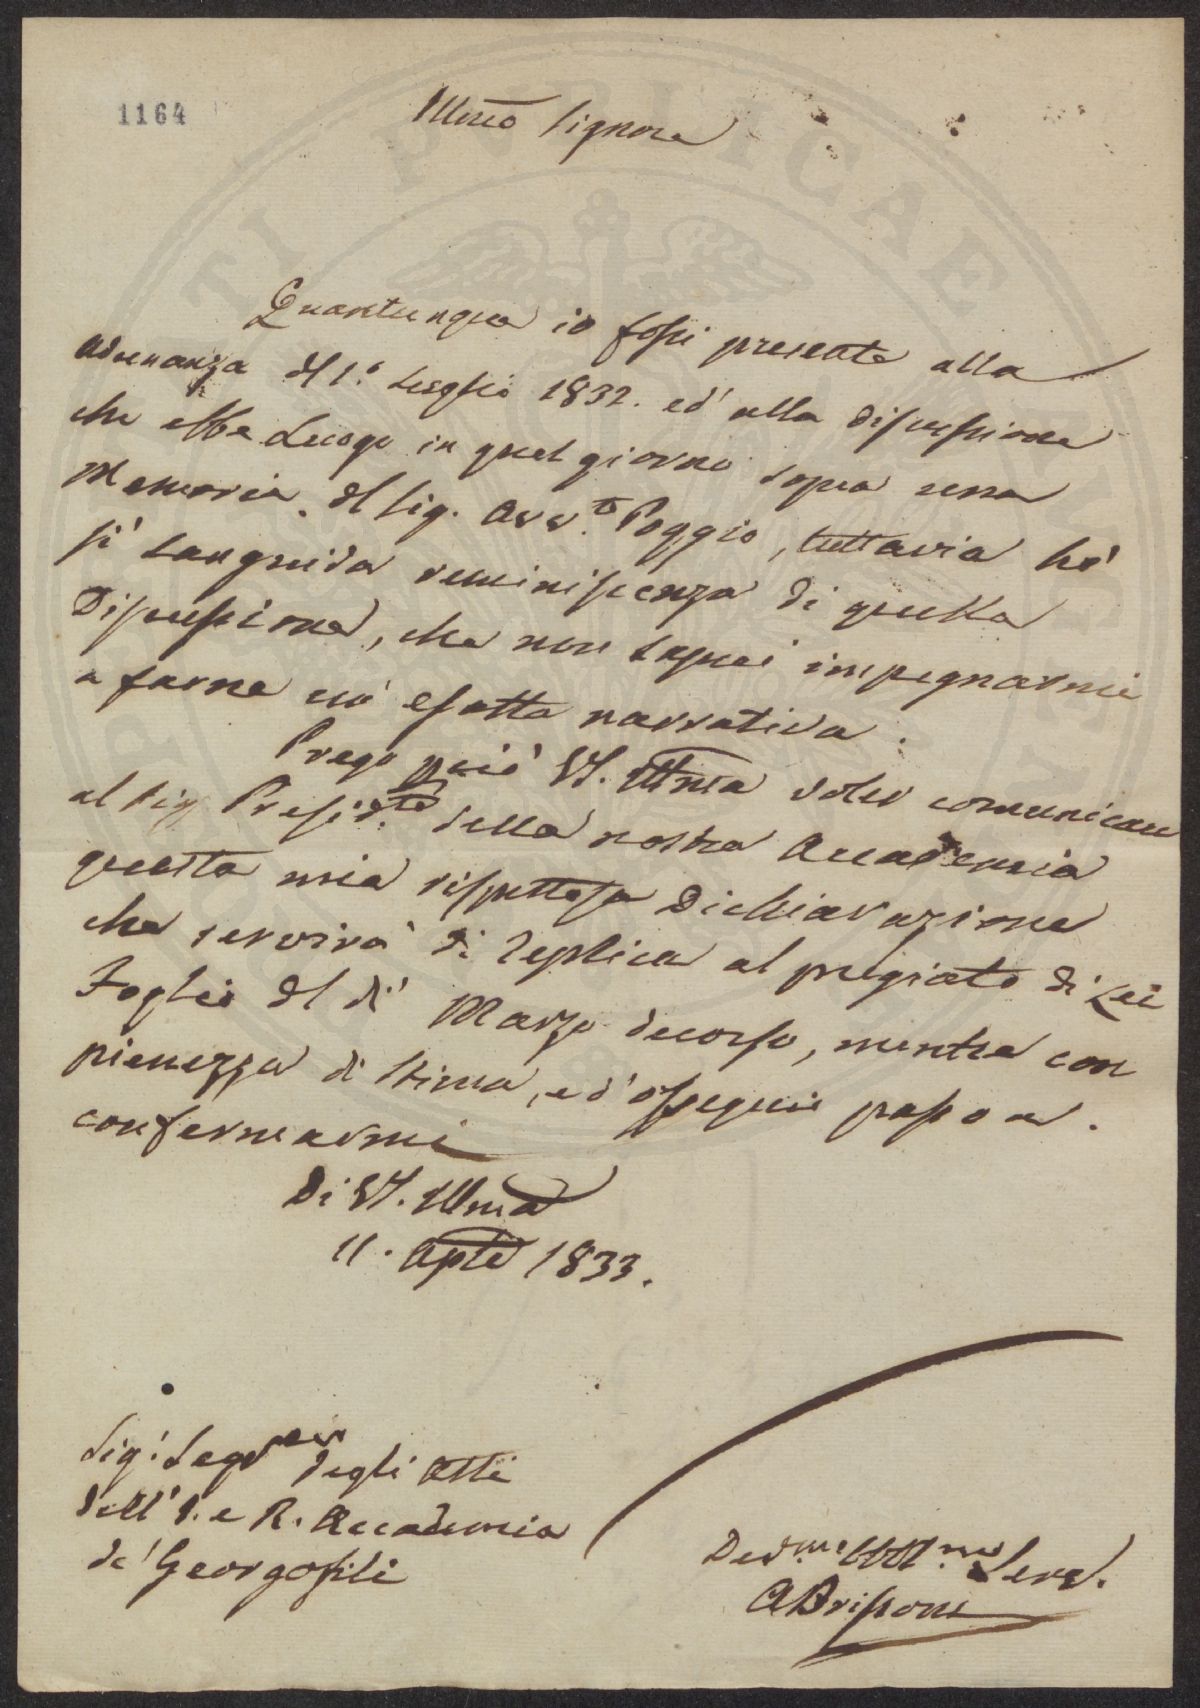 1164
Illmo Signore
Quantunque io fossi presente alla
adunanza del 1.º Luglio 1832. ed' alla discussione
che ebbe Luogo in quel giorno sopra una
Memoria del Sig. Avv.to Poggio, tuttavia hò
sì languida reminiscenza di quella
Discussione, che non saprei impegnarmi
a farne un' esatta narrativa.
Prego perciò VS. Illma voler comunicare
al Sig. Presid.te della nostra Accademia
questa mia rispettosa Dichiarazione
che servirà di replica al pregiato di Lei
Foglio del dì Marzo decorso, mentre con
pienezza di stima, ed' ossequio passo a.
confermarmi
Di VS. Illma
11. Aple 1833.
Sig. Seg.rio degli Atti
dell' I. e R. Accademia
de' Georgofili
Dev.mo Obbl.mo Serv.